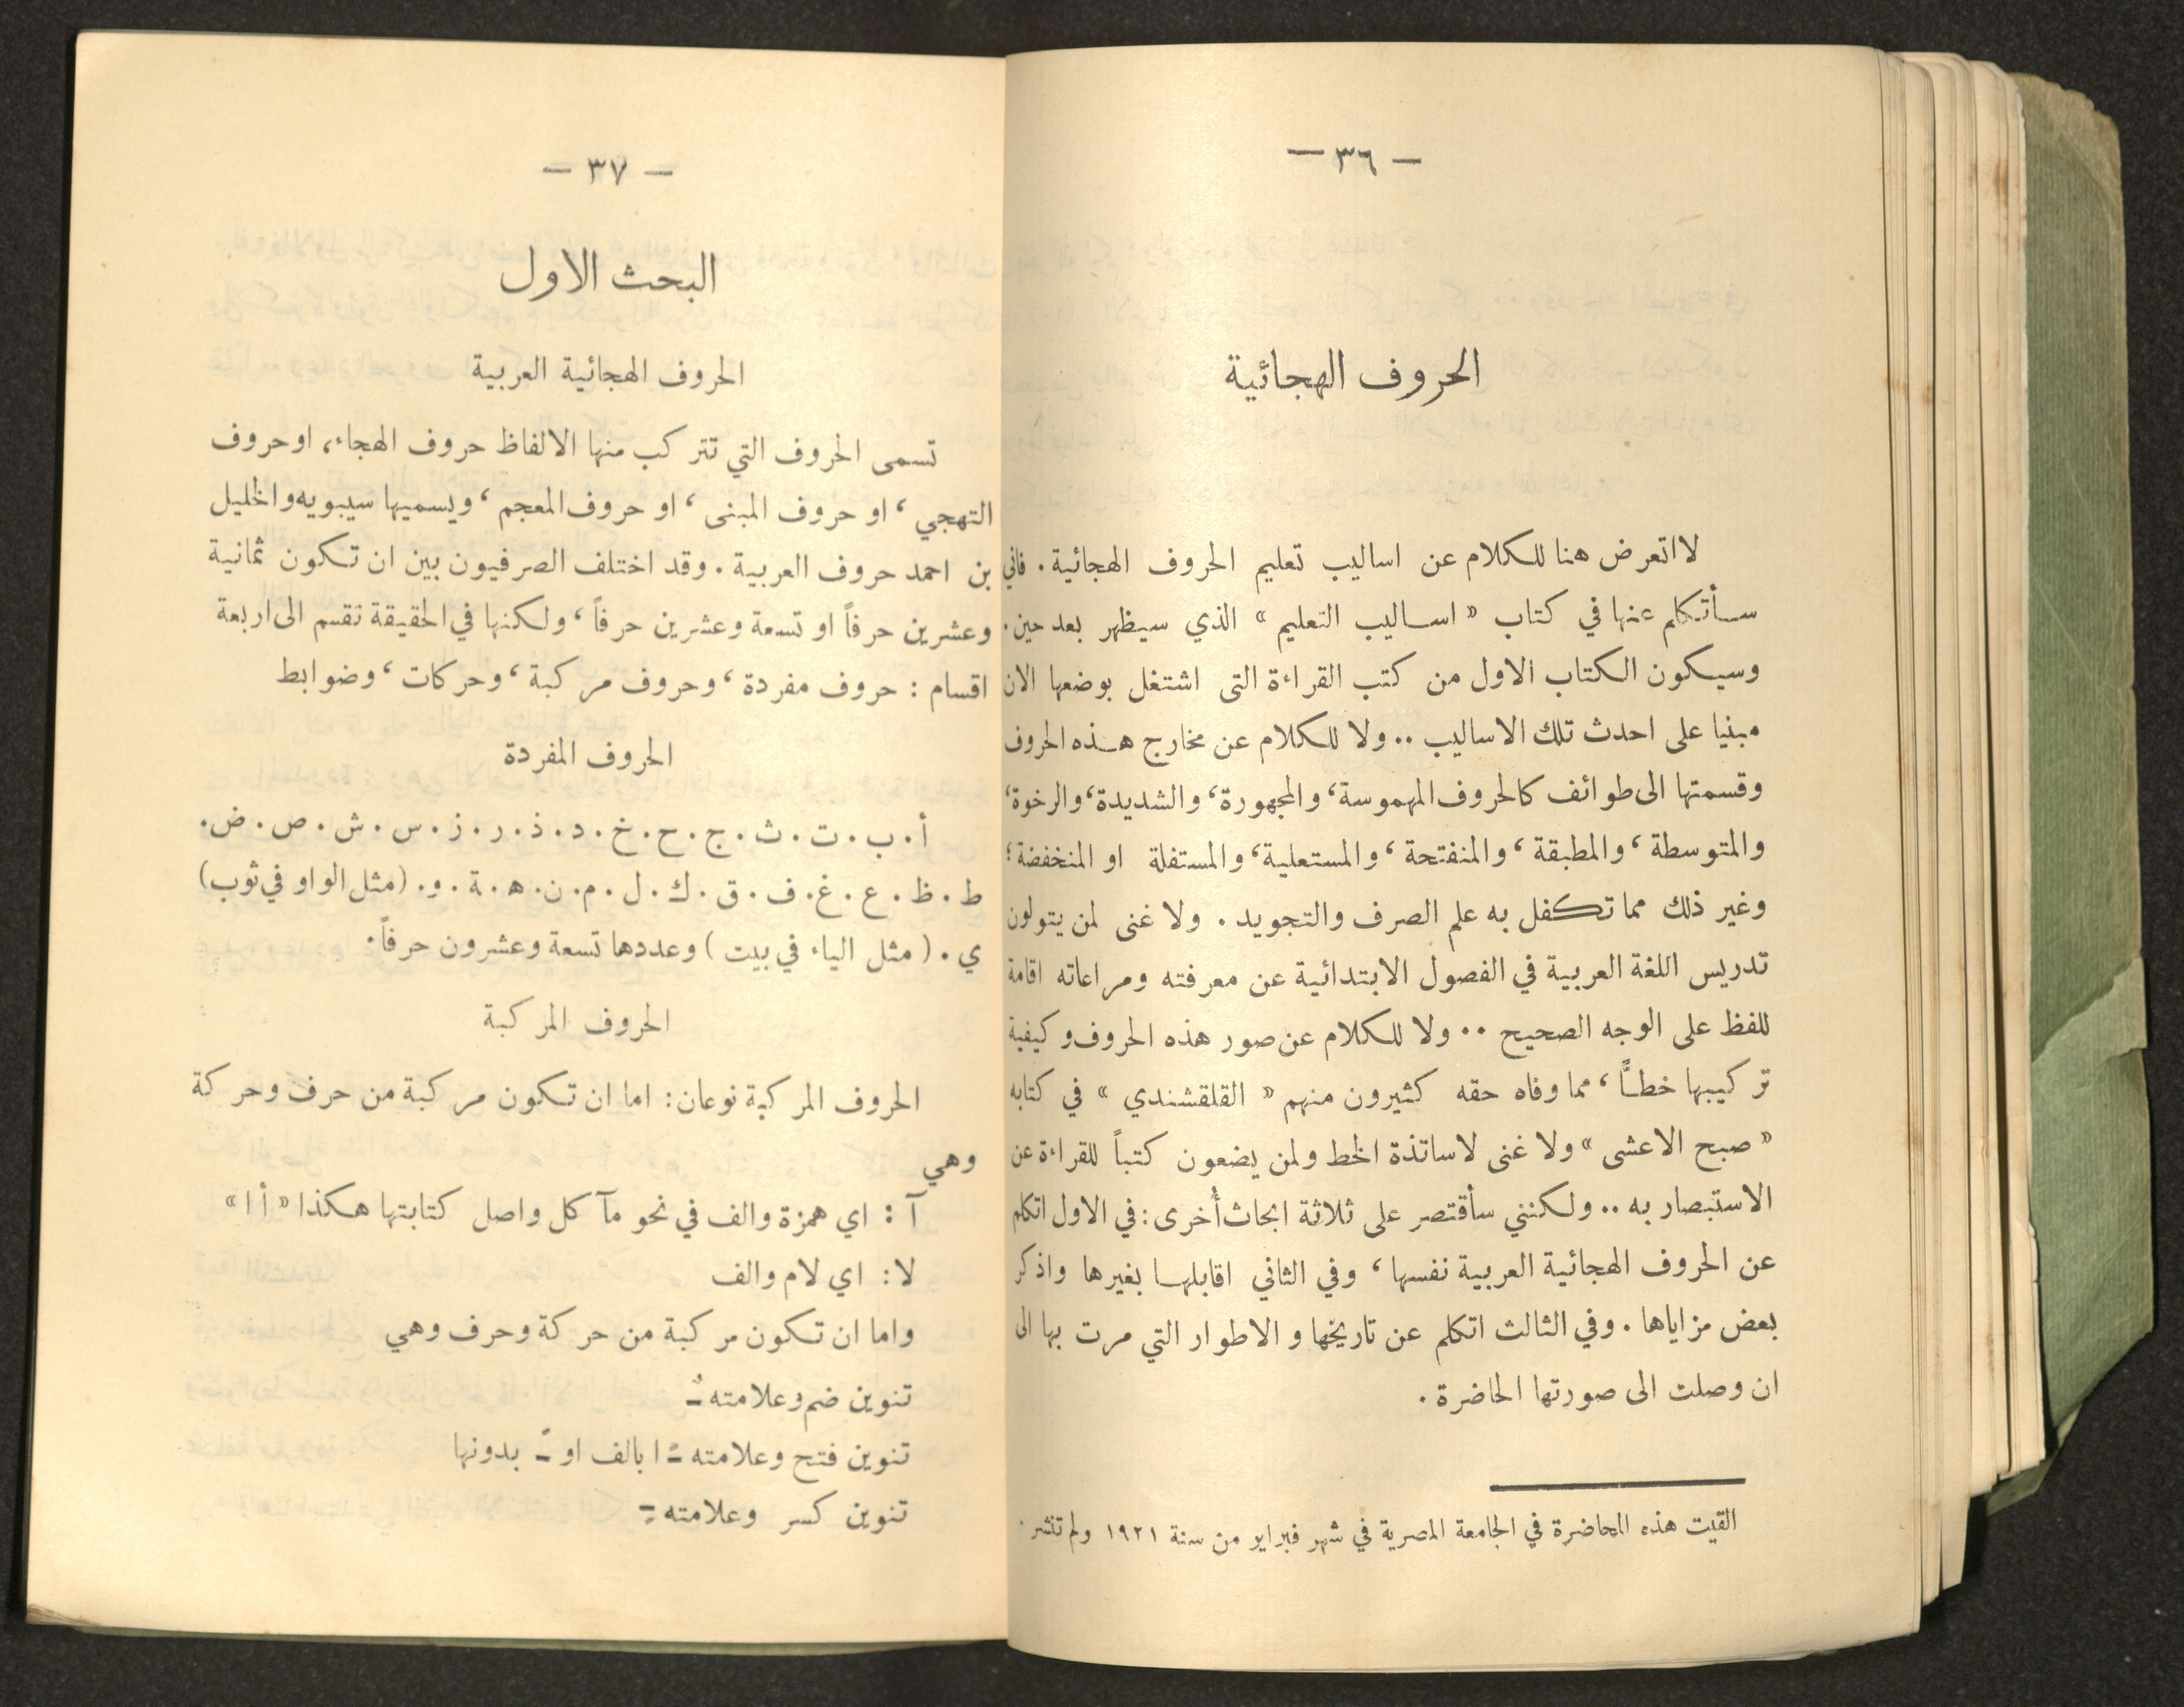 — ٣٦ —
الحروف الهجائية
لا اتعرض هنا للكلام عن اساليب تعليم الحروف الهجائية. فاني
سأتكلم عنها في كتاب « اساليب التعليم » الذي سيظهر بعد حين.
وسيكون الكتاب الاول من كتب القراءة التى اشتغل بوضعها الان
مبنيا على احدث تلك الاساليب .. ولا للكلام عن مخارج هذه الحروف
وقسمتها الى طوائف كالحروف المهموسة، والمجهورة، والشديدة، والرخوة،
والمتوسطة، والمطبقة، والمنفتحة، والمستعلية، والمستفلة او المنخفضة؛
وغير ذلك مما تكفل به علم الصرف والتجويد. ولا غنى لمن يتولون
تدريس اللغة العربية في الفصول الابتدائية عن معرفته ومراعاته اقامة
للفظ على الوجه الصحيح .. ولا للكلام عن صور هذه الحروف وكيفية
تركيبها خطـًّا، مما وفاه حقه كثيرون منهم « القلقشندي » في كتابه
« صبح الاعشى » ولا غنى لاساتذة الخط ولمن يضعون كتباً للقراءة عن
الاستبصار به .. ولكنني سأقتصر على ثلاثة ابحاث أُخرى : في الاول اتكلم
عن الحروف الهجائية العربية نفسها، وفي الثاني اقابلها بغيرها واذكر
بعض مزاياها. وفي الثالث اتكلم عن تاريخها والاطوار التي مرت بها الى
ان وصلت الى صورتها الحاضرة.
القيت هذه المحاضرة في الجامعة المصرية في شهر فبراير من سنة ١٩٢١ ولم تنشر.
— ٣٧ —
البحث الاول
الحروف الهجائية العربية
تسمى الحروف التي تتركب منها الالفاظ حروف الهجاء، او حروف
التهجي، او حروف المبنى، او حروف المعجم، ويسميها سيبويه والخليل
بن احمد حروف العربية. وقد اختلف الصرفيون بين ان تكون ثمانية
وعشرين حرفاً او تسعة وعشرين حرفاً، ولكنها في الحقيقة نقسم الى اربعة
اقسام : حروف مفردة، وحروف مركبة، وحركات، وضوابط
الحروف المفردة
أ. ب. ت. ث. ج. ح. خ. د. ذ. ر. ز. س. ش. ص. ض.
ط. ظ. ع. غ. ف. ق. ك. ل. م. ن. ه. ة. و. (مثل الواو في ثوب)
ي. ( مثل الياء في بيت ) وعددها تسعة وعشرون حرفاً.
الحروف المركبة
الحروف المركبة نوعان : اما ان تكون مركبة من حرف وحركة
وهي
آ : اي همزة والف في نحو مآكل واصل كتابتها هكذا « أ ا »
لا : اي لام والف
واما ان تكون مركبة من حركة وحرف وهي
تنوين ضم وعلامته ـٌ
تنوين فتح وعلامته ـً ا بالف او ـً بدونها
تنوين كسر وعلامته ـٍ